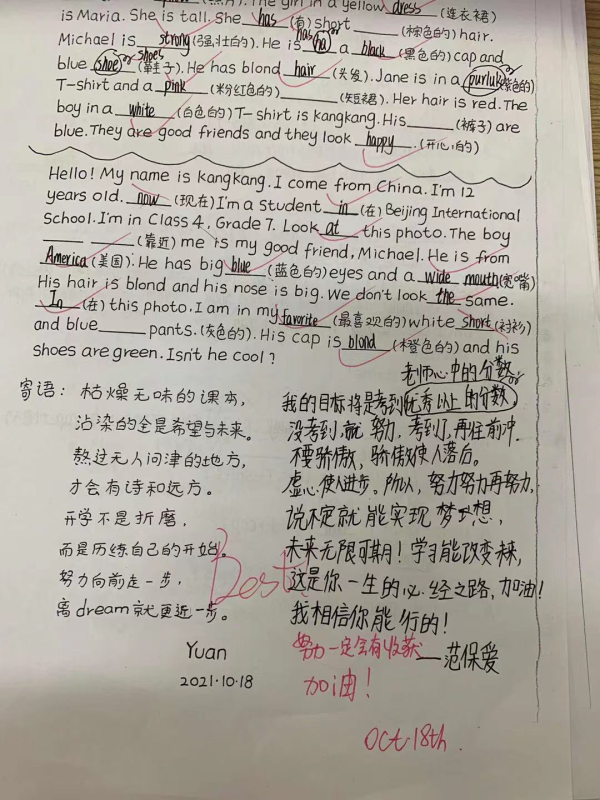 The girl in a yellow dress (连衣裙)
is Maria. She is tall. She has (有) short ______ (棕色的) hair.
Michael is strong (强壮的). He is has ha or a black (黑色的) cap and
blue shoe or shoes (鞋子). He has blond hair (头发). Jane is in a purluk or (紫色的)
T-shirt and a pink (粉红色的) ______ (短裙). Her hair is red. The
boy in a white (白色的) T-shirt is kangkang. His ______ (裤子) are
blue. They are good friends and they look happy. (开心的)
Hello! My name is kangkang. I come from China. I'm 12
years old. now (现在) I'm a student in (在) Beijing International
school. I'm in Class 4, Grade 7. Look at this photo. The boy
______ ______ (靠近) me is my good friend, Michael. He is from
America (美国). He has big blue (蓝色的) eyes and a wide mouth (宽嘴)
His hair is blond and his nose is big. We don't look the same.
In (在) this photo. I am in my favorite (最喜观的) white short (衬衫)
and blue ______ pants. (灰色的). His cap is blond (橙色的) and his
shoes are green. Isn't he cool?
寄语: 枯燥无味的课本,
沾染的全是希望与未来。
熬过无人问津的地方,
才会有诗和远方。
开学不是折磨,
而是历练自己的开始。
努力向前走一步,
离dream就更近一步。
Yuan
2021.10.18
老师心中的分数 or
我的目标将是考到优秀以上的分数
没考到就努力, 考到了, 再往前冲.
不要骄傲, 骄傲使人落后。
虚心使人进步。所以, 努力努力再努力,
说不定就能实现梦想,
未来无限可期! 学习能改变未来,
这是你一生的必经之路, 加油!
我相信你能行的!
——范保爱
Best
努力一定会有收获
加油!
Oct.18th.